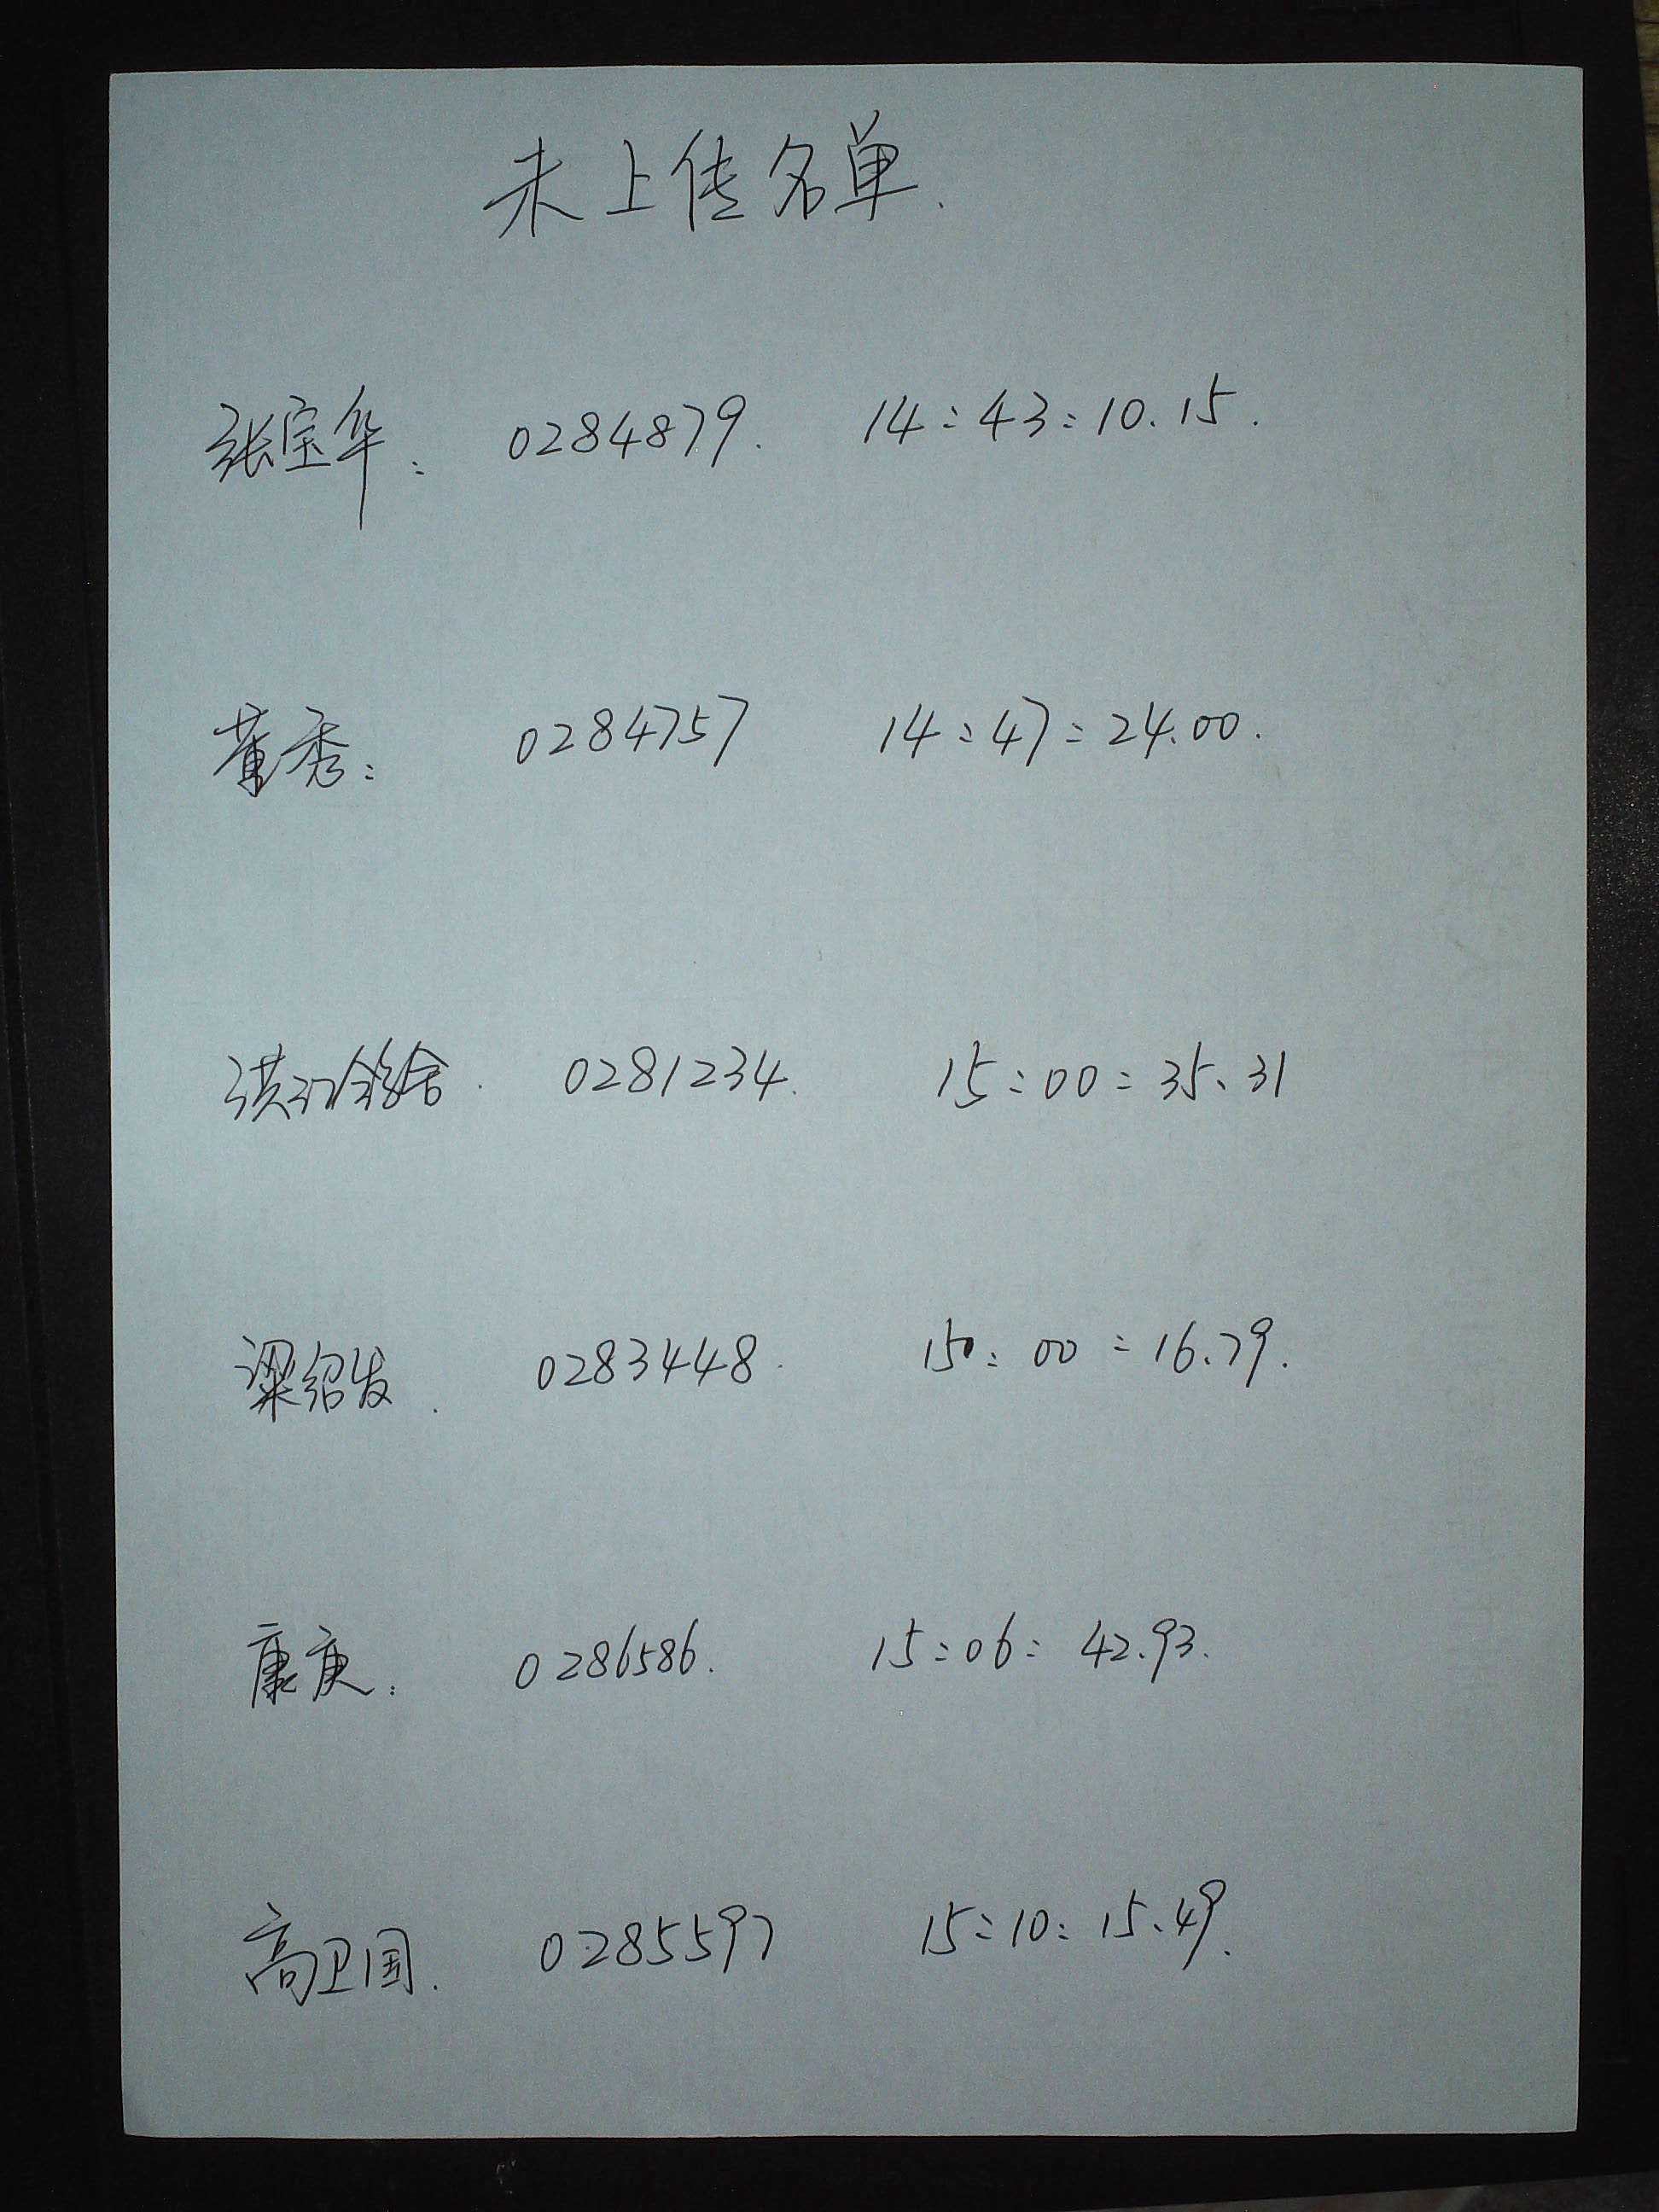 未上传名单.
张宝华: 0284879. 14:43:10.15.
董秀: 0284757 14:47:24.00.
洪鸽舍. 0281234. 15:00:35.31
梁绍发. 0283448. 15:00:16.79.
康庚: 0286586. 15:06:42.93.
高卫国. 0285597 15:10:15.49.